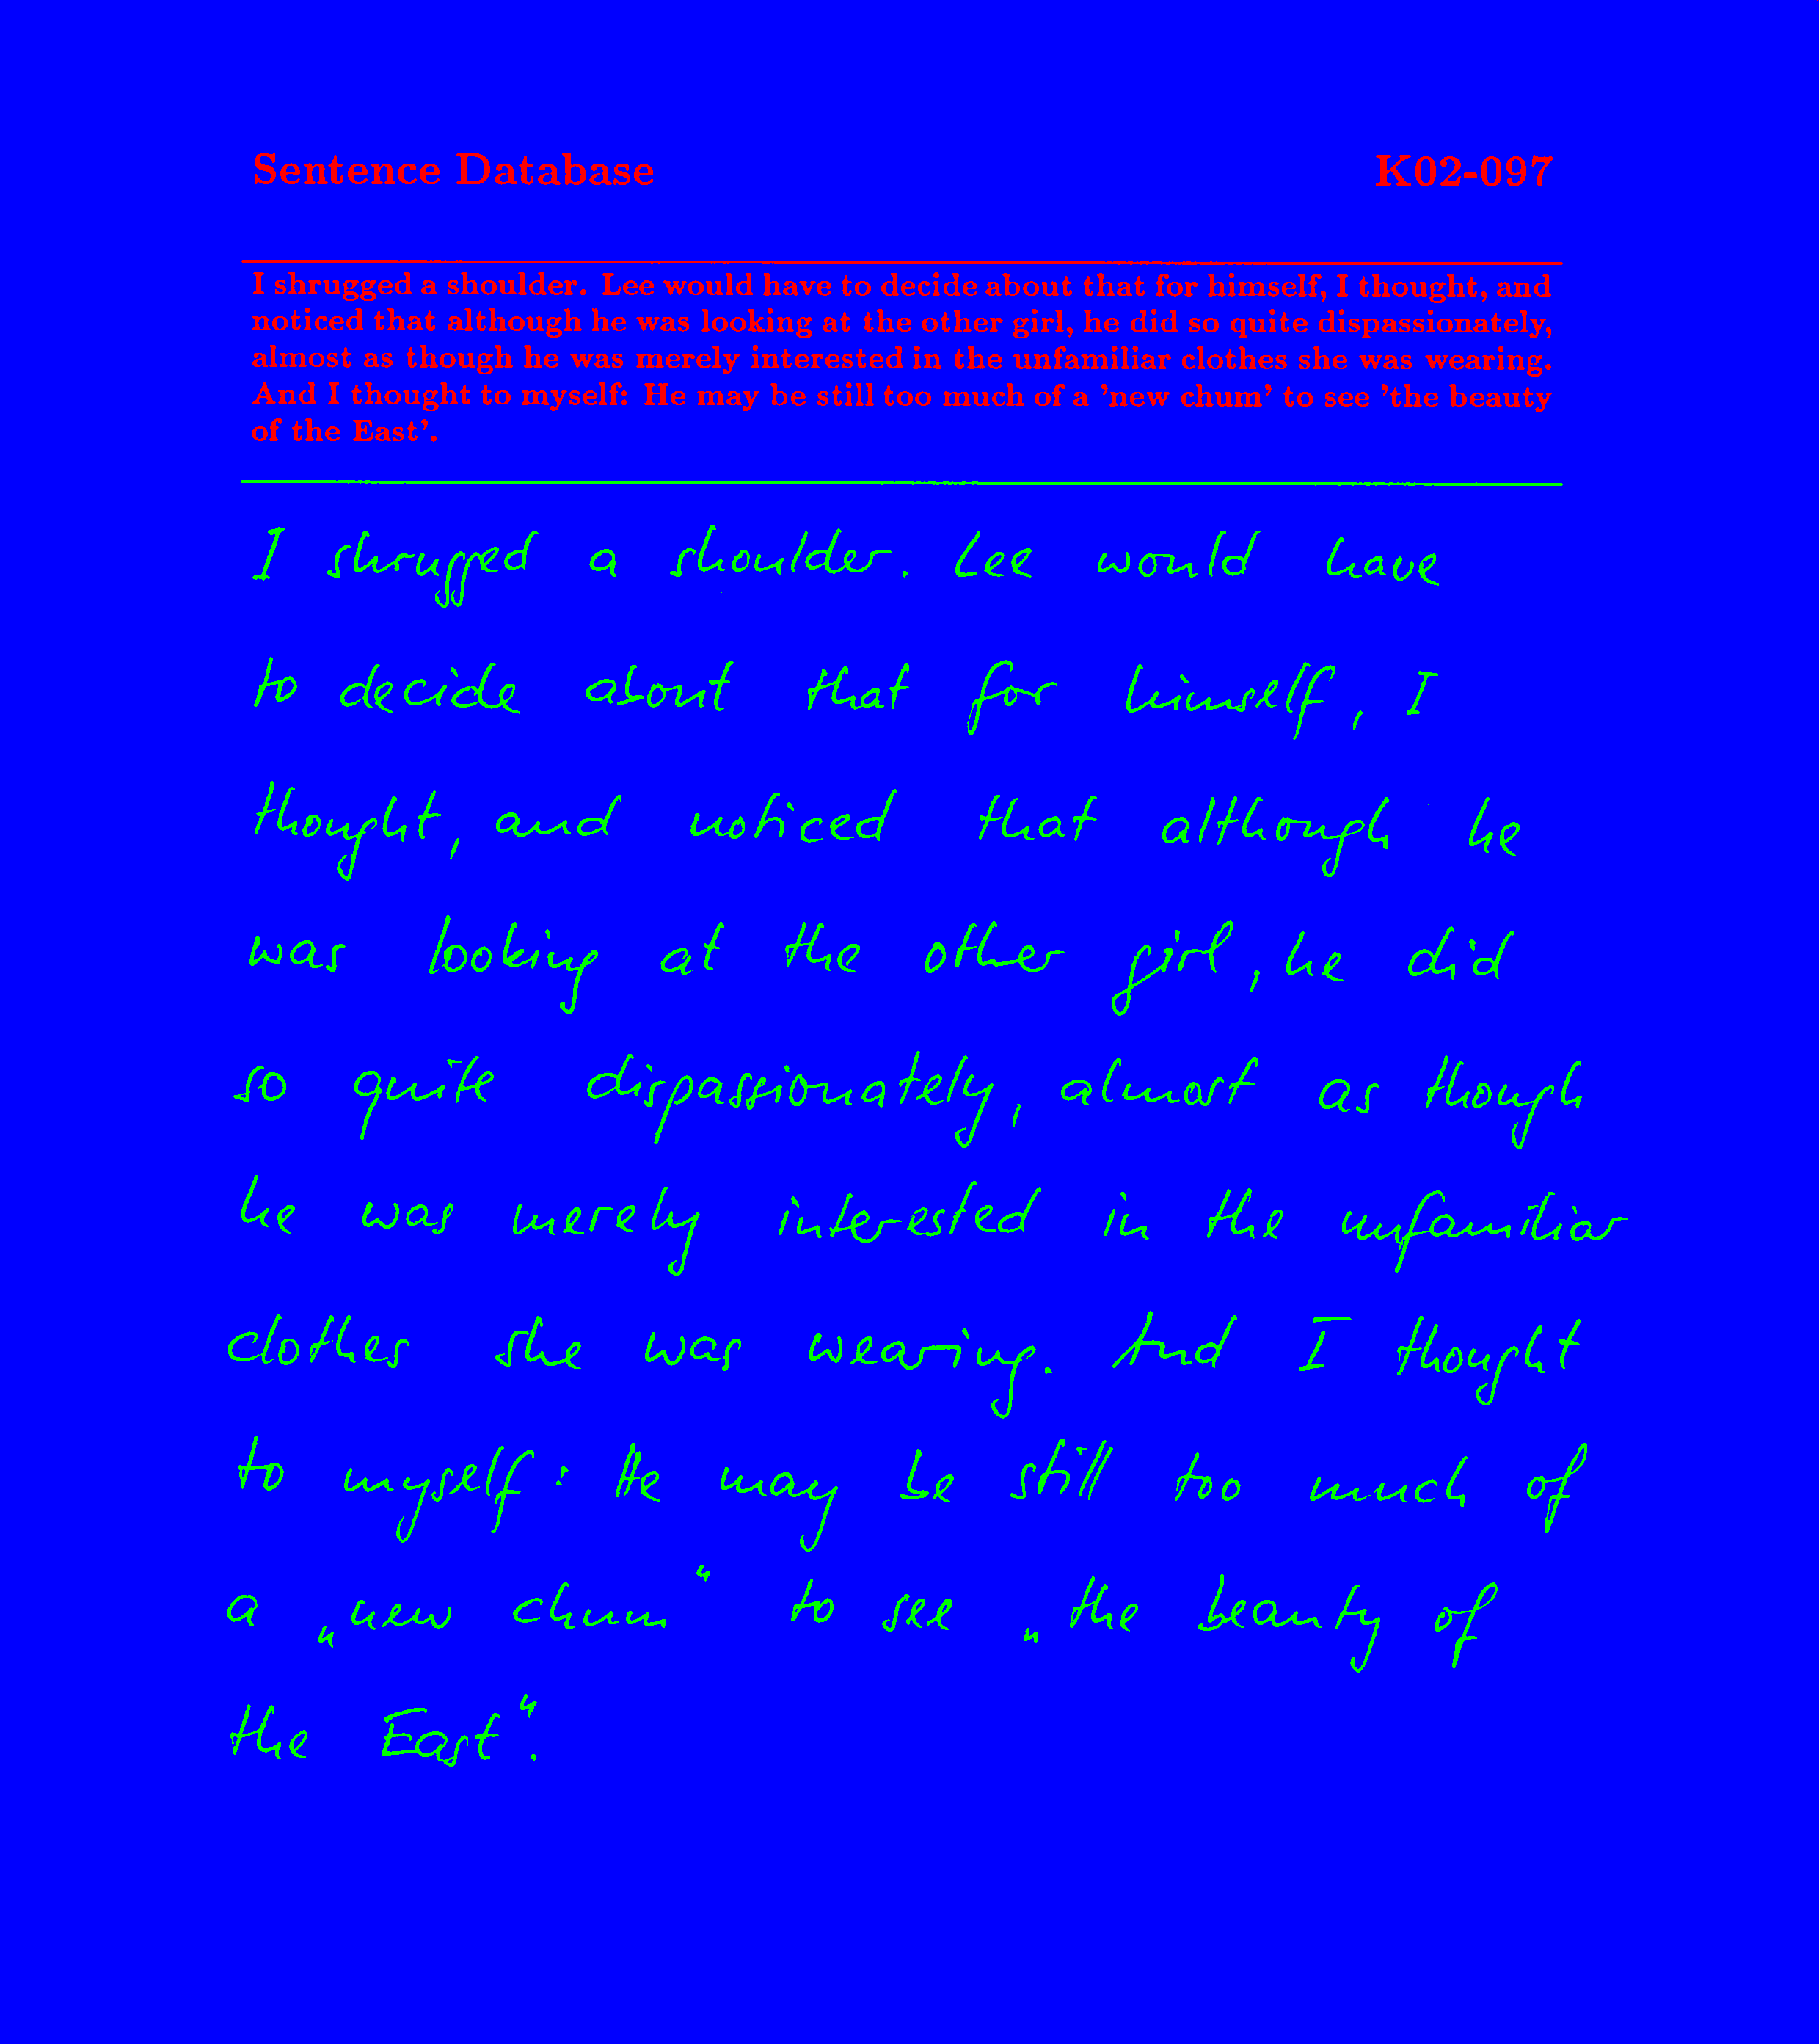 Sentence Database K02-097
I shrugged a shoulder. Lee would have to decide about that for himself, I thought, and
noticed that although he was looking at the other girl, he did so quite dispassionately,
almost as though he was merely interested in the unfamiliar clothes she was wearing.
And I thought to myself: He may be still too much of a 'new chum' to see 'the beauty
of the East'.
I shrugged a shoulder. Lee would have
to decide about that for himself, I
thought, and noticed that although he
was looking at the other girl, he did
so quite dispassionately, almost as though
he was merely interested in the unfamiliar
clothes she was wearing. And I thought
to myself: He may be still too much of
a „new chum“ to see „the beauty of
the East“.